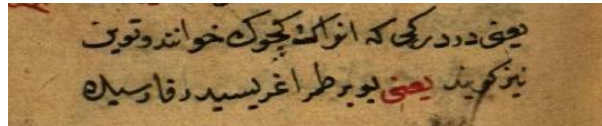 یعنی دردرکی که انوراکت کچوک خوانند و توین
نیز کویند یعنی بو بر طمر اغریسیدر قارسیله